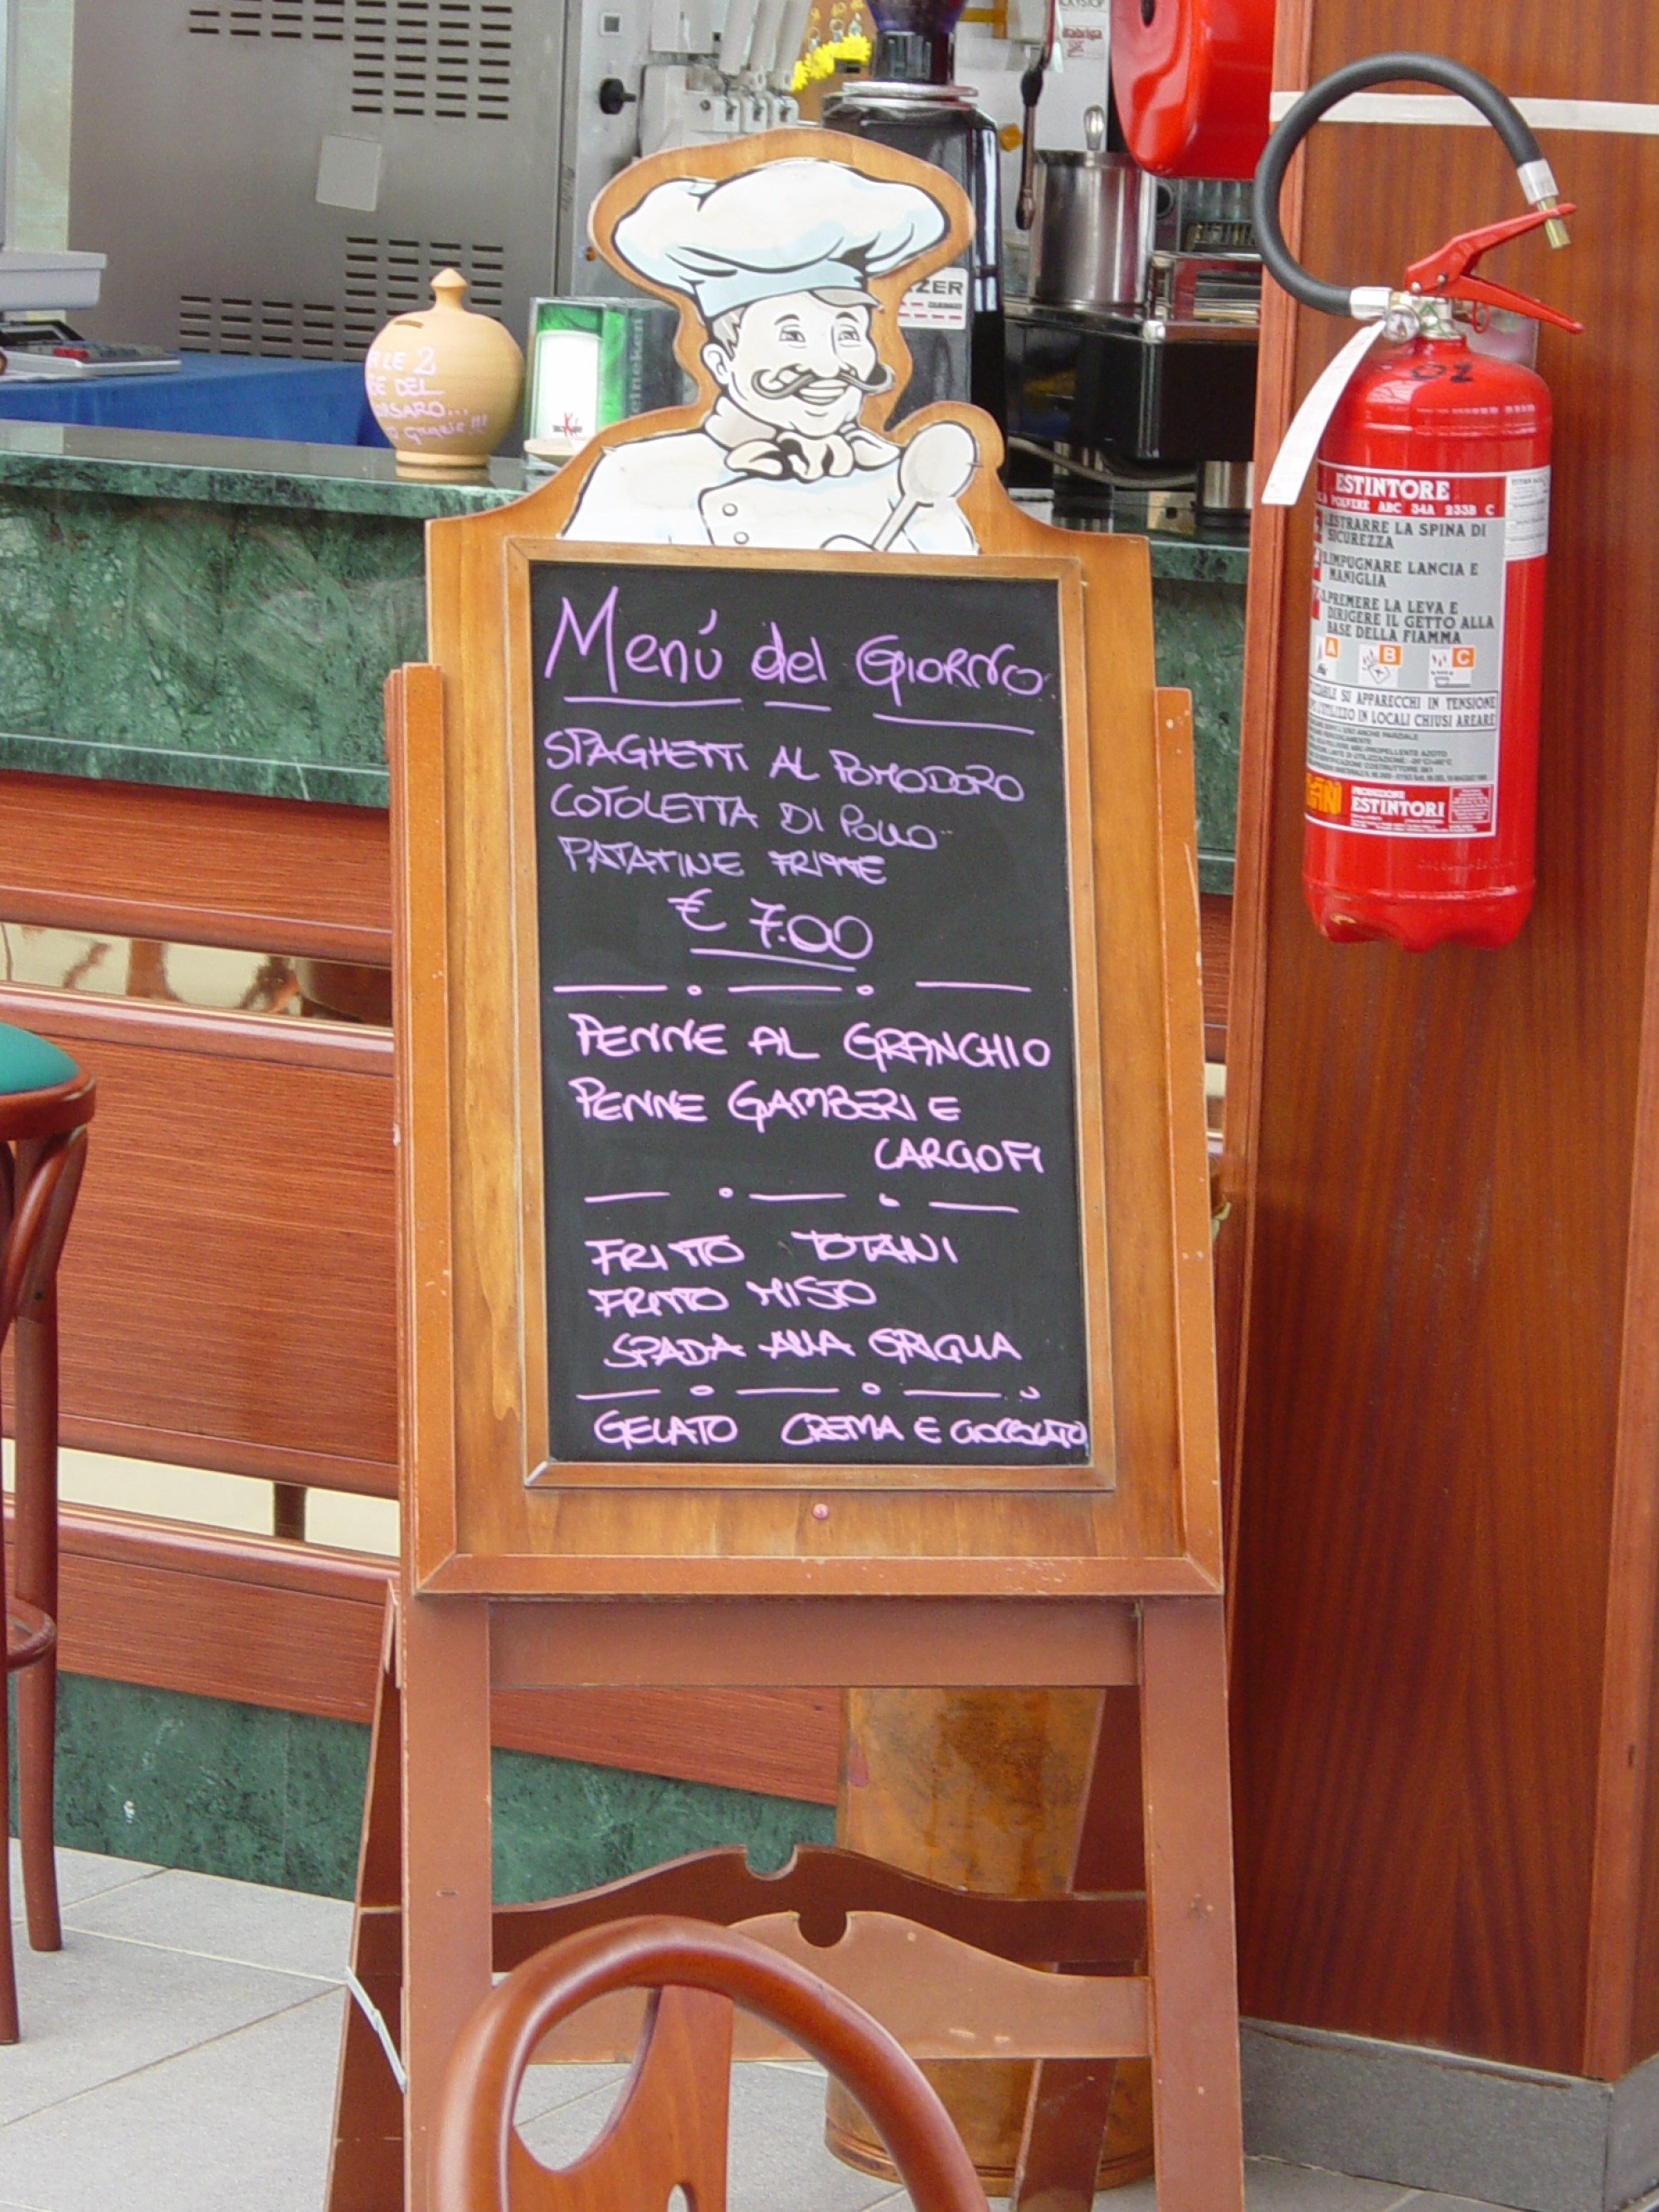 Menú del GIORNO
SPAGHETTI AL POMODORO
COTOLETTA DI POLLO
PATATINE FRITTE
€ 7.00
PENNE AL GRANCHIO
PENNE GAMBERI E
CARCIOFI
FRITTO TOTANI
FRITTO MISTO
SPADA ALLA GRIGLIA
GELATO CREMA E CIOCCOLATO
DEL
Grazie !!!
Heineken
ESTINTORE
POLVERE ABC 34A 233B C
ESTRARRE LA SPINA DI
SICUREZZA
IMPUGNARE LANCIA E
MANIGLIA
PREMERE LA LEVA E
DIRIGERE IL GETTO ALLA
BASE DELLA FIAMMA
A B C
SU APPARECCHI IN TENSIONE
IN LOCALI CHIUSI AREARE
ESTINTORI